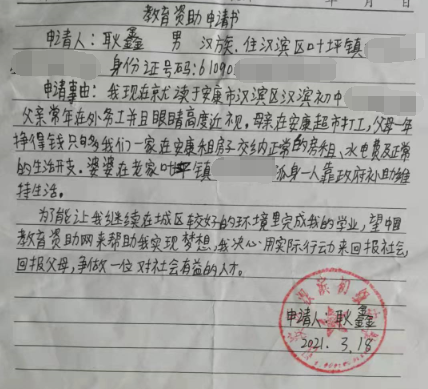 年 月 日
教育资助申请书
申请人:耿鑫 男 汉族,住汉滨区叶坪镇
身份证号码:61090
申请事由:我现在就读于安康市汉滨区汉滨初中
父亲常年在外务工并且眼睛高度近视。母亲在安康超市打工,父母一年
挣得钱只够我们一家在安康租房子交纳正常的房租、水电费及正常
的生活开支。婆婆在老家叶坪镇 孤身一人靠政府补助维
持生活。
为了能让我继续在城区较好的环境里完成我的学业,望中国
教育资助网来帮助我实现梦想,我决心用实际行动来回报社会,
回报父母,争做一位对社会有益的人才。
申请人:耿鑫
2021.3.18